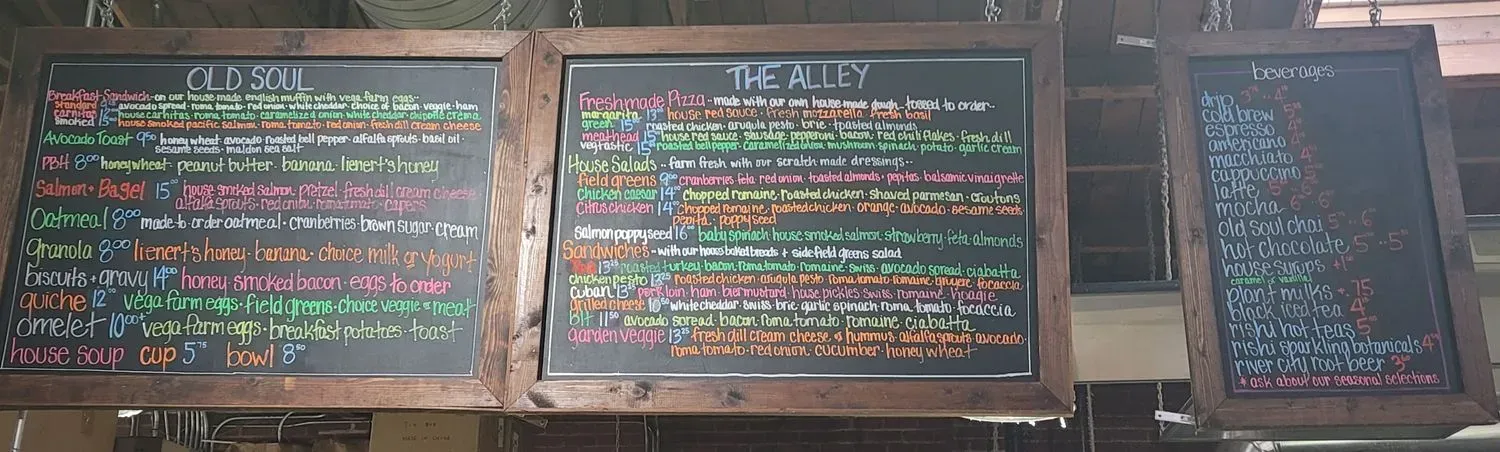 OLD SOUL
Breakfast Sandwich - on our house made english muffin with vega farm eggs -
standard avocado spread · roma tomato · red onion · white cheddar · choice of bacon · veggie · ham
carnitas house carnitas · roma tomato · caramelized onion · white cheddar · chipotle crema
smoked 15 house smoked pacific salmon · roma tomato · red onion · fresh dill cream cheese
Avocado Toast 9⁵⁰ honey wheat · avocado · roasted bell pepper · alfalfa sprouts · basil oil ·
sesame seeds · maldon sea salt
PBH 8⁰⁰ honey wheat · peanut butter · banana · lienert's honey
Salmon + Bagel 15 house smoked salmon · pretzel · fresh dill cream cheese
alfalfa sprouts · red onion · roma tomato · capers
Oatmeal 8⁰⁰ made to order oatmeal · cranberries · brown sugar · cream
Granola 8⁰⁰ lienert's honey · banana · choice milk or yogurt
biscuits + gravy 14⁰⁰ honey smoked bacon · eggs to order
quiche 12⁰⁰ vega farm eggs · field greens · choice veggie or meat
omelet 10⁰⁰⁺ vega farm eggs · breakfast potatoes · toast
house soup cup 5⁷⁵ bowl 8⁵⁰
THE ALLEY
Fresh made Pizza -- made with our own house made dough · tossed to order --
margarita 13 house red sauce · fresh mozzarella · fresh basil
green 15 roasted chicken · arugula pesto · brie · toasted almonds
meathead 15 house red sauce · sausage · pepperoni · bacon · red chili flakes · fresh dill
vegtastic 15 roasted bell pepper · caramelized onion · mushroom · spinach · potato · garlic cream
House Salads -- farm fresh with our scratch made dressings --
field greens 9⁰⁰ cranberries · feta · red onion · toasted almonds · pepitas · balsamic vinaigrette
chicken caesar 14 chopped romaine · roasted chicken · shaved parmesan · croutons
citrus chicken 14 chopped romaine · roasted chicken · orange · avocado · sesame seeds
pepita · poppy seed
salmon poppy seed 16 baby spinach · house smoked salmon · strawberry · feta · almonds
Sandwiches - with our house baked breads + side field greens salad
13²⁵ roasted turkey · bacon · roma tomato · romaine · swiss · avocado spread · ciabatta
chicken pesto 13²⁵ roasted chicken · arugula pesto · roma tomato · romaine · gruyere · focaccia
Cuban 13 pork loin · ham · bier mustard · house pickles · swiss · romaine · hoagie
grilled cheese 10⁵⁰ white cheddar · swiss · brie · garlic spinach · roma tomato · focaccia
blt 11⁵⁰ avocado spread · bacon · roma tomato · romaine · ciabatta
garden veggie 13²⁵ fresh dill cream cheese or hummus · alfalfa sprouts · avocado ·
roma tomato · red onion · cucumber · honey wheat
beverages
drip
cold brew
espresso
americano
macchiato
cappuccino
latte
mocha
old soul chai
hot chocolate
house syrups
caramel or vanilla
plant milks + .75
black iced tea
rishi hot teas
rishi sparkling botanicals
river city root beer
* ask about our seasonal selections
MADE IN CHINA